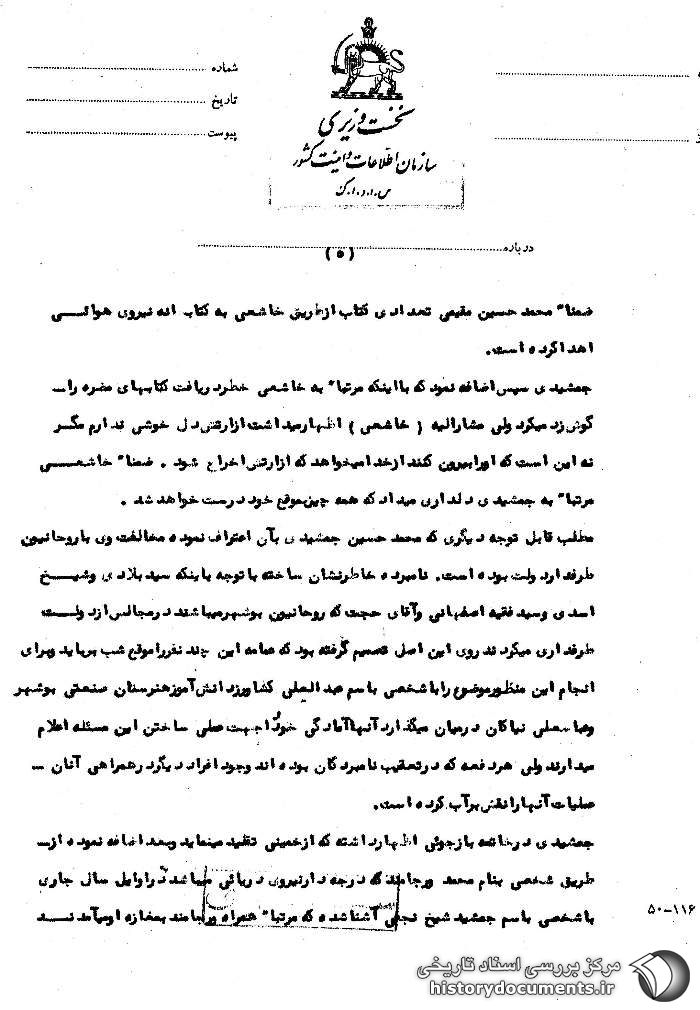 شماره
تاریخ
پیوست
نخست وزیری
سازمان اطلاعات و امنیت کشور
س.ا.و.ا.ک
درباره
(٥)
ضمنا" محمد حسین مقیمی تعدادی کتاب ازطریق خاشعی به کتاب انه نیروی هوائــی
اهدا کرده است.
جمشیدی سپس اضافه نمود که بااینکه مرتبا" به خاشعی خطر دریافت کتابهای مضره راــ
گوش زد میکرد ولی مشارالیه (خاشعی) اظهار میداشت ازارتش دل خوشی ندارم مگــر
نه این است که اورا بیرون کنند ازخدا میخواهد که ازارتش اخراج شود . ضمنا" خاشعــی
مرتبا" به جمشیدی دلداری میداد که همه چیز بموقع خود درست خواهد شد .
مطلب قابل توجه دیگری که محمد حسین جمشیدی بآن اعتراف نموده مخالفت وی با روحانیون
طرفدار دولت بوده است. نامبرده خاطرنشان ساخته با توجه باینکه سید بلادی وشیــخ
اسدی وسید فقیه اصفهانی وآقای حجت که روحانیون بوشهر میباشند درمجالس از دولــت
طرفداری میکردند روی این اصل تصمیم گرفته بود که عمامه این چند نفررا موقع شب برباید وبرای
انجام این منظور موضوع را با شخصی باسم عبدالعلی کشاورز دانش آموز هنرستان صنعتی بوشهر
نیاکان درمیان میگذارد آنها آمادگی خود را جهت عملی ساختن این مسئله اعلام
میدارند ولی هر دفعه که درتعقیب نامبردگان بوده اند وجود افراد دیگر درهمراهی آنان ــ
عملیات آنها را نقش برآب کرده است.
جمشیدی درخاتمه بازجوئی اظهار داشته که ازخمینی تقلید مینماید وبعد اضافه نموده ازــ
طریق شخصی بنام محمد ورجامند که درجه دار نیروی دریائی میباشد دراوایل سال جاری
با شخصی باسم جمشید شیخ نجفی آشنا شده که مرتبا" همراه ورجامند بمغازه او میآمدنــد
۵۰-۱۱۶
مرکز بررسی اسناد تاریخی
historydocuments.ir